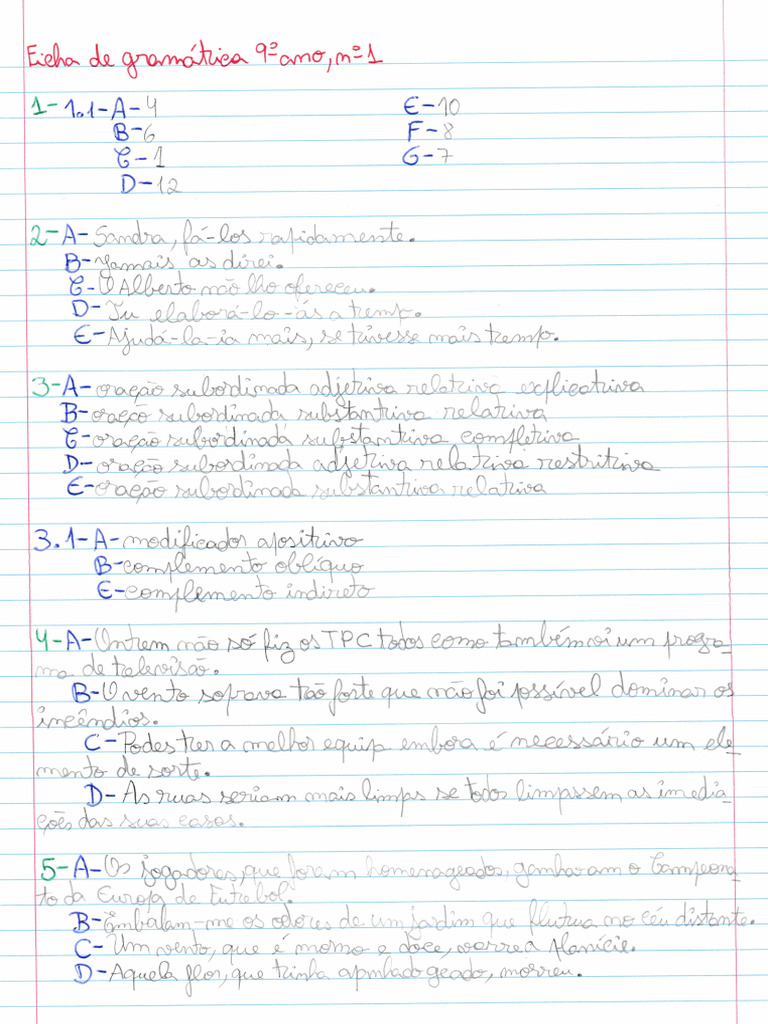 Ficha de gramática 9º ano, nº 1
1- 1.1- A- 4 E- 10
B- 6 F- 8
C- 1 G- 7
D- 12
2- A- Sandra, fá-los rapidamente.
B- Jamais as direi.
C- O Alberto não lho ofereceu.
D- Tu elaborá-lo-ás a temp.
E- Ajudá-la-ia mais, se tivesse mais temp.
3- A- oração subordinada adjetiva relativa explicativa
B- oraço subordinada substantiva relativa
C- oração subordinada substantiva completiva
D- oração subordinada adjetiva relativa restritiva
E- oração subordinada substantiva relativa
3.1- A- modificador apositivo
B- complemento oblíquo
E- complemento indireto
4- A- Ontem não só fiz os TPC todos como também vi um progra-
ma de televisão.
B- O vento soprava tão forte que não foi possível dominar os
incêndios.
C- Podes ter a melhor equip embora é necessário um ele-
mento de sorte.
D- As ruas seriam mais limps se todos limpssem as imedia-
ções das suas casas.
5- A- Os jogadores, que foram homenageados, ganharam o Campeona-
to da Europa de Futebol.
B- Embalam-me os odores de um jardim que flutua no céu distante.
C- Um vento, que é morno e doce, varre a planície.
D- Aquela flor, que tinha apnhado geado, morreu.